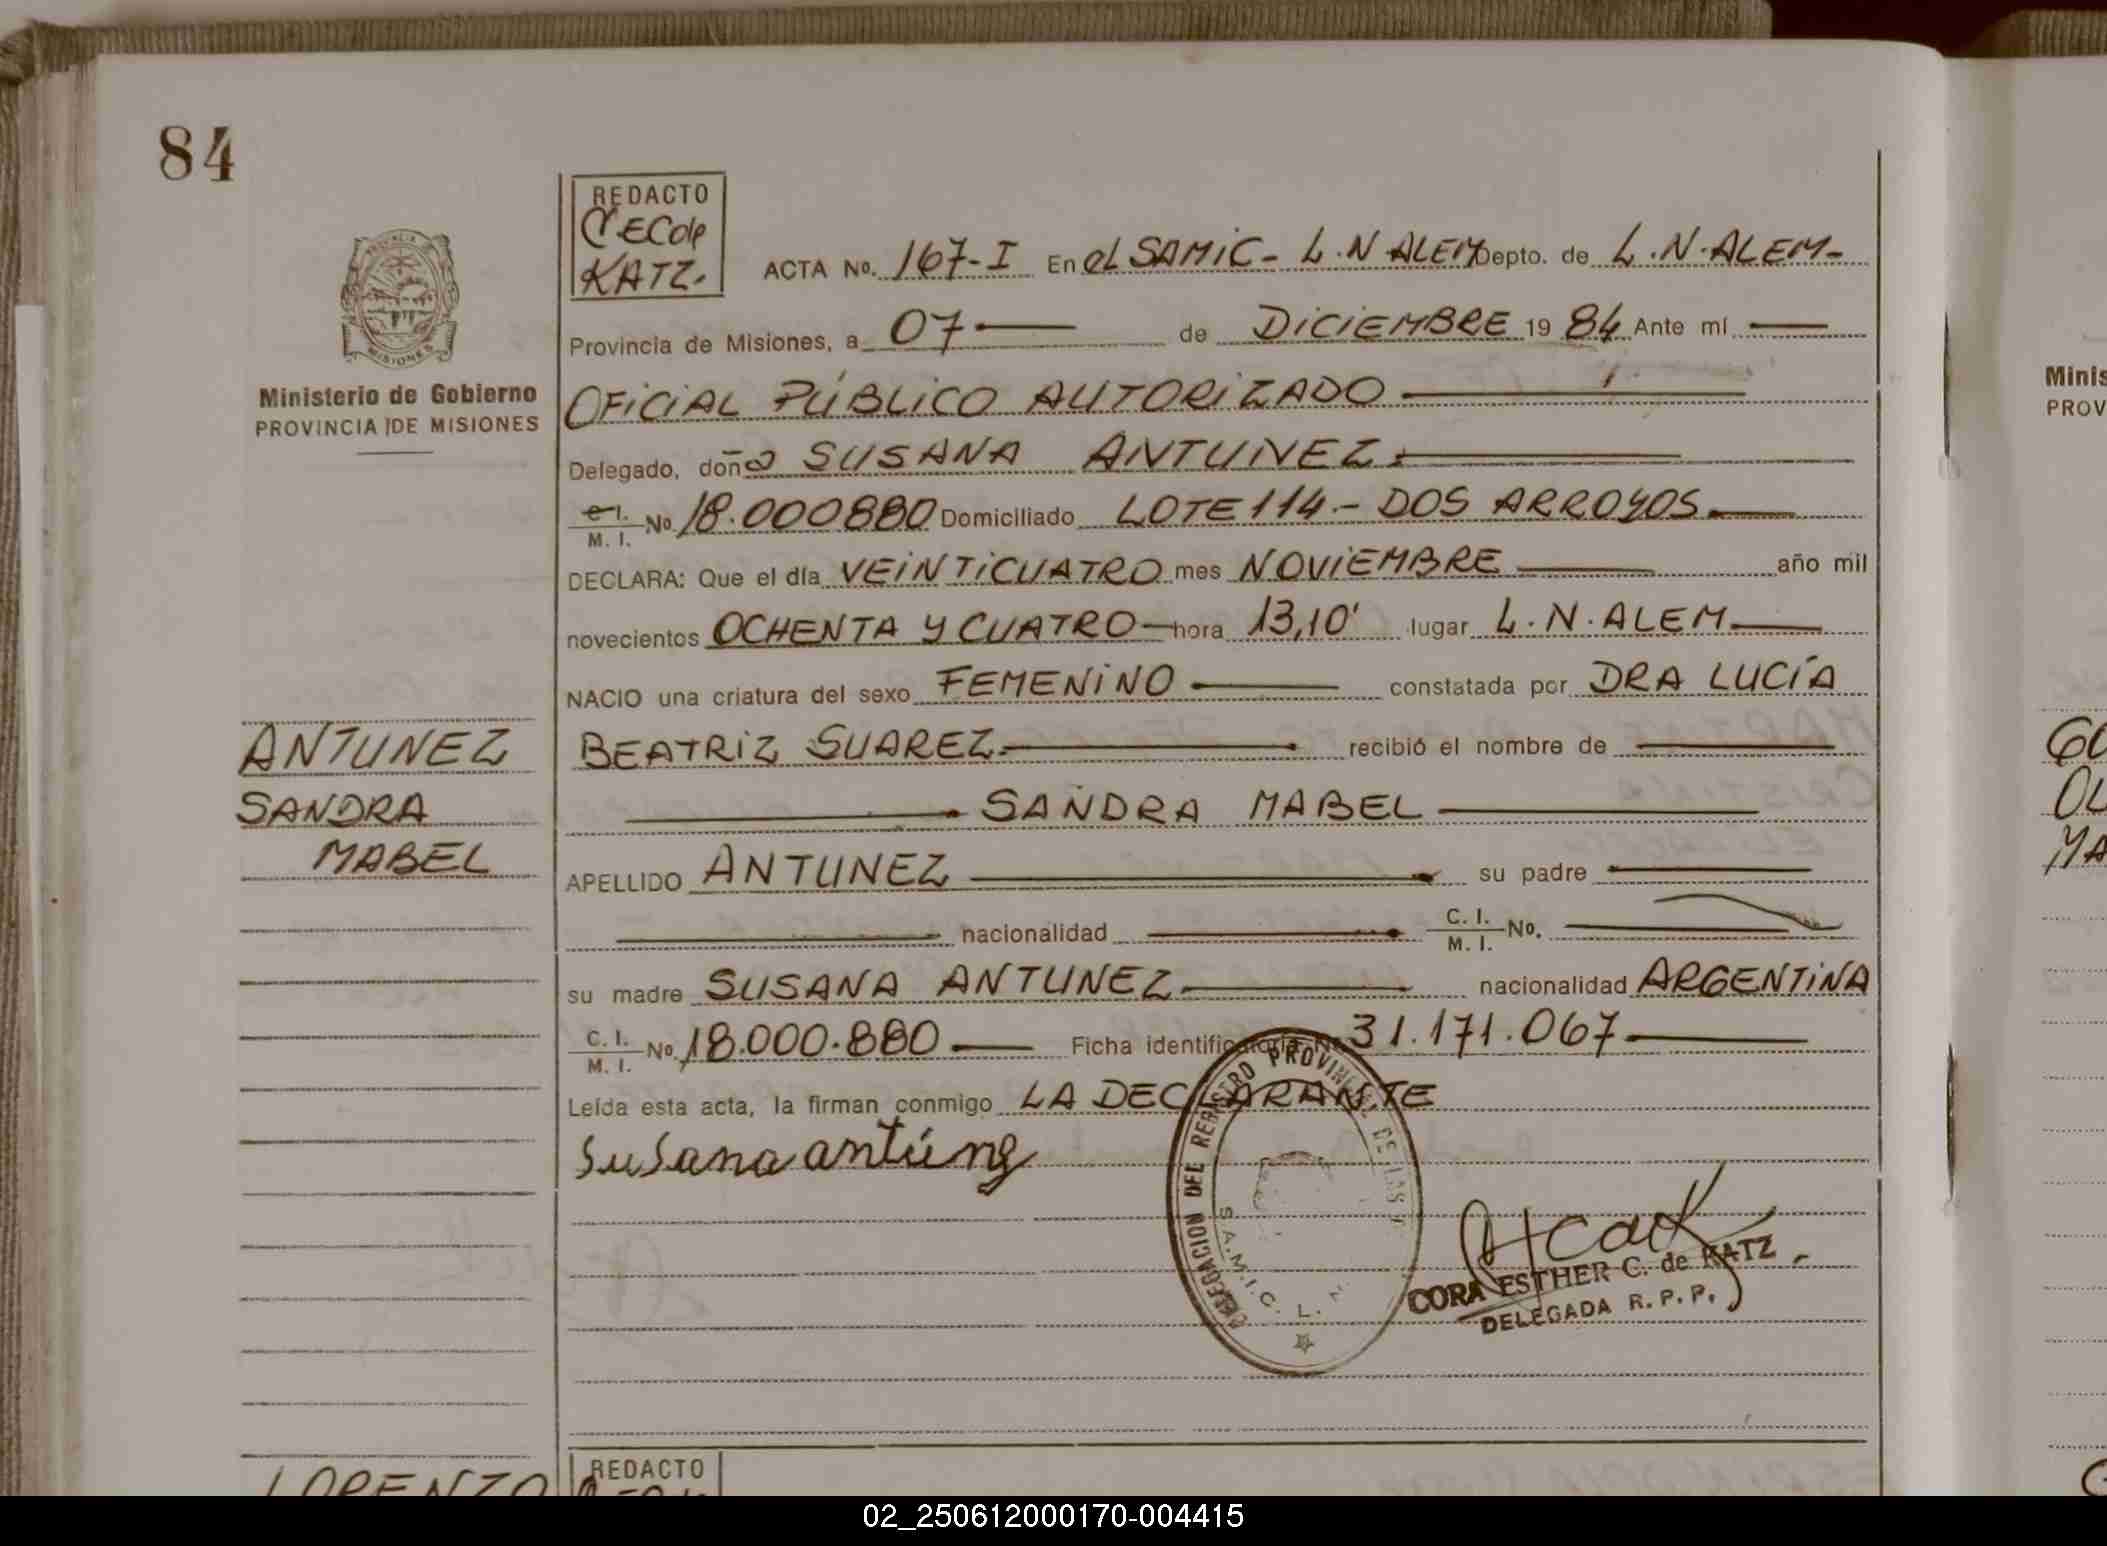 84
REDACTO
CECde
KATZ.
ACTA No. 167-I En el SAMIC - L.N ALEM Depto. de L.N.ALEM-
PROVINCIA
MISIONES
Ministerio de Gobierno
PROVINCIA DE MISIONES
Provincia de Misiones, a 07 de DICIEMBRE 1984 Ante mí
OFICIAL PÚBLICO AUTORIZADO
Delegado, doña SUSANA ANTUNEZ.
C.I. M. I. No. 18.000880 Domiciliado LOTE 114.- DOS ARROYOS.
DECLARA: Que el día VEINTICUATRO mes NOVIEMBRE año mil
novecientos OCHENTA Y CUATRO hora 13,10' lugar L.N.ALEM.
NACIO una criatura del sexo FEMENINO constatada por DRA LUCÍA
ANTUNEZ
SANDRA
MABEL
BEATRIZ SUAREZ. recibió el nombre de
SANDRA MABEL
APELLIDO ANTUNEZ su padre
nacionalidad C. I. M. I. No.
su madre SUSANA ANTUNEZ nacionalidad ARGENTINA
C. I. M. I. No. 18.000.880 Ficha identificatoria No. 31.171.067
Leída esta acta, la firman conmigo LA DECLARANTE
Susana antúnez
DELEGACION DEL REGISTRO PROVINCIAL DE LAS
S.A.M.I.C. L. N
CORA ESTHER C. de KATZ
DELEGADA R. P. P.
LORENZO
REDACTO
Minis
PROV
GO
OL
MA
02_250612000170-004415